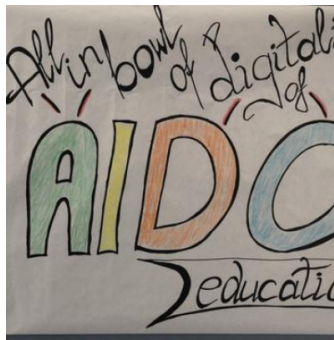 All in bowl of digitali
of
AIDO
education